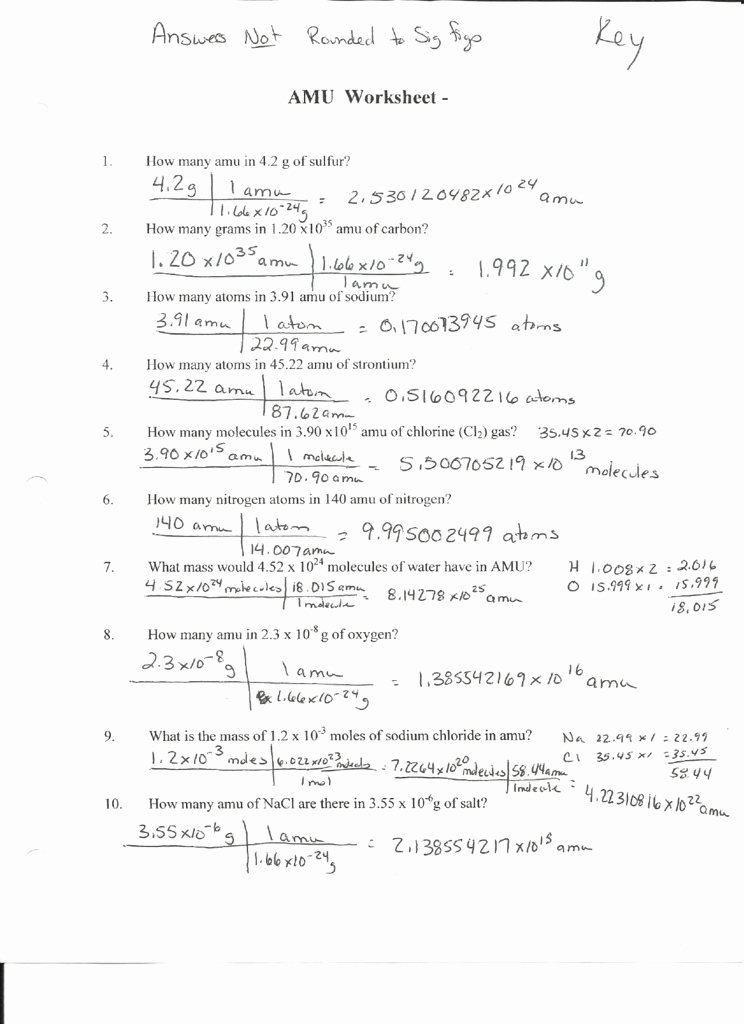 Answers Not Rounded to Sig figs Key
AMU Worksheet -
1. How many amu in 4.2 g of sulfur?
4.2g | 1 amu
1.66 x 10⁻²⁴g = 2.530120482 x 10²⁴ amu
2. How many grams in 1.20 x10³⁵ amu of carbon?
1.20 x 10³⁵ amu | 1.66 x 10⁻²⁴g
1 amu = 1.992 x 10¹¹ g
3. How many atoms in 3.91 amu of sodium?
3.91 amu | 1 atom
22.99 amu = 0.170073945 atoms
4. How many atoms in 45.22 amu of strontium?
45.22 amu | 1 atom
87.62 amu = 0.516092216 atoms
5. How many molecules in 3.90 x10¹⁵ amu of chlorine (Cl₂) gas? 35.45 x 2 = 70.90
3.90 x 10¹⁵ amu | 1 molecule
70.90 amu = 5.500705219 x 10¹³ molecules
6. How many nitrogen atoms in 140 amu of nitrogen?
140 amu | 1 atom
14.007 amu = 9.995002499 atoms
7. What mass would 4.52 x 10²⁴ molecules of water have in AMU? H 1.008 x 2 = 2.016
O 15.999 x 1 = 15.999
18.015
4.52 x 10²⁴ molecules | 18.015 amu
1 molecule = 8.14278 x 10²⁵ amu
8. How many amu in 2.3 x 10⁻⁸ g of oxygen?
2.3 x 10⁻⁸ g | 1 amu
1.66 x 10⁻²⁴ g = 1.385542169 x 10¹⁶ amu
9. What is the mass of 1.2 x 10⁻³ moles of sodium chloride in amu? Na 22.99 x 1 = 22.99
Cl 35.45 x 1 = 35.45
58.44
1.2 x 10⁻³ moles | 6.022 x 10²³ molecules
1 mol = 7.2264 x 10²⁰ molecules | 58.44 amu
1 molecule = 4.22310816 x 10²² amu
10. How many amu of NaCl are there in 3.55 x 10⁻⁶g of salt?
3.55 x 10⁻⁶ g | 1 amu
1.66 x 10⁻²⁴ g = 2.138554217 x 10¹⁸ amu